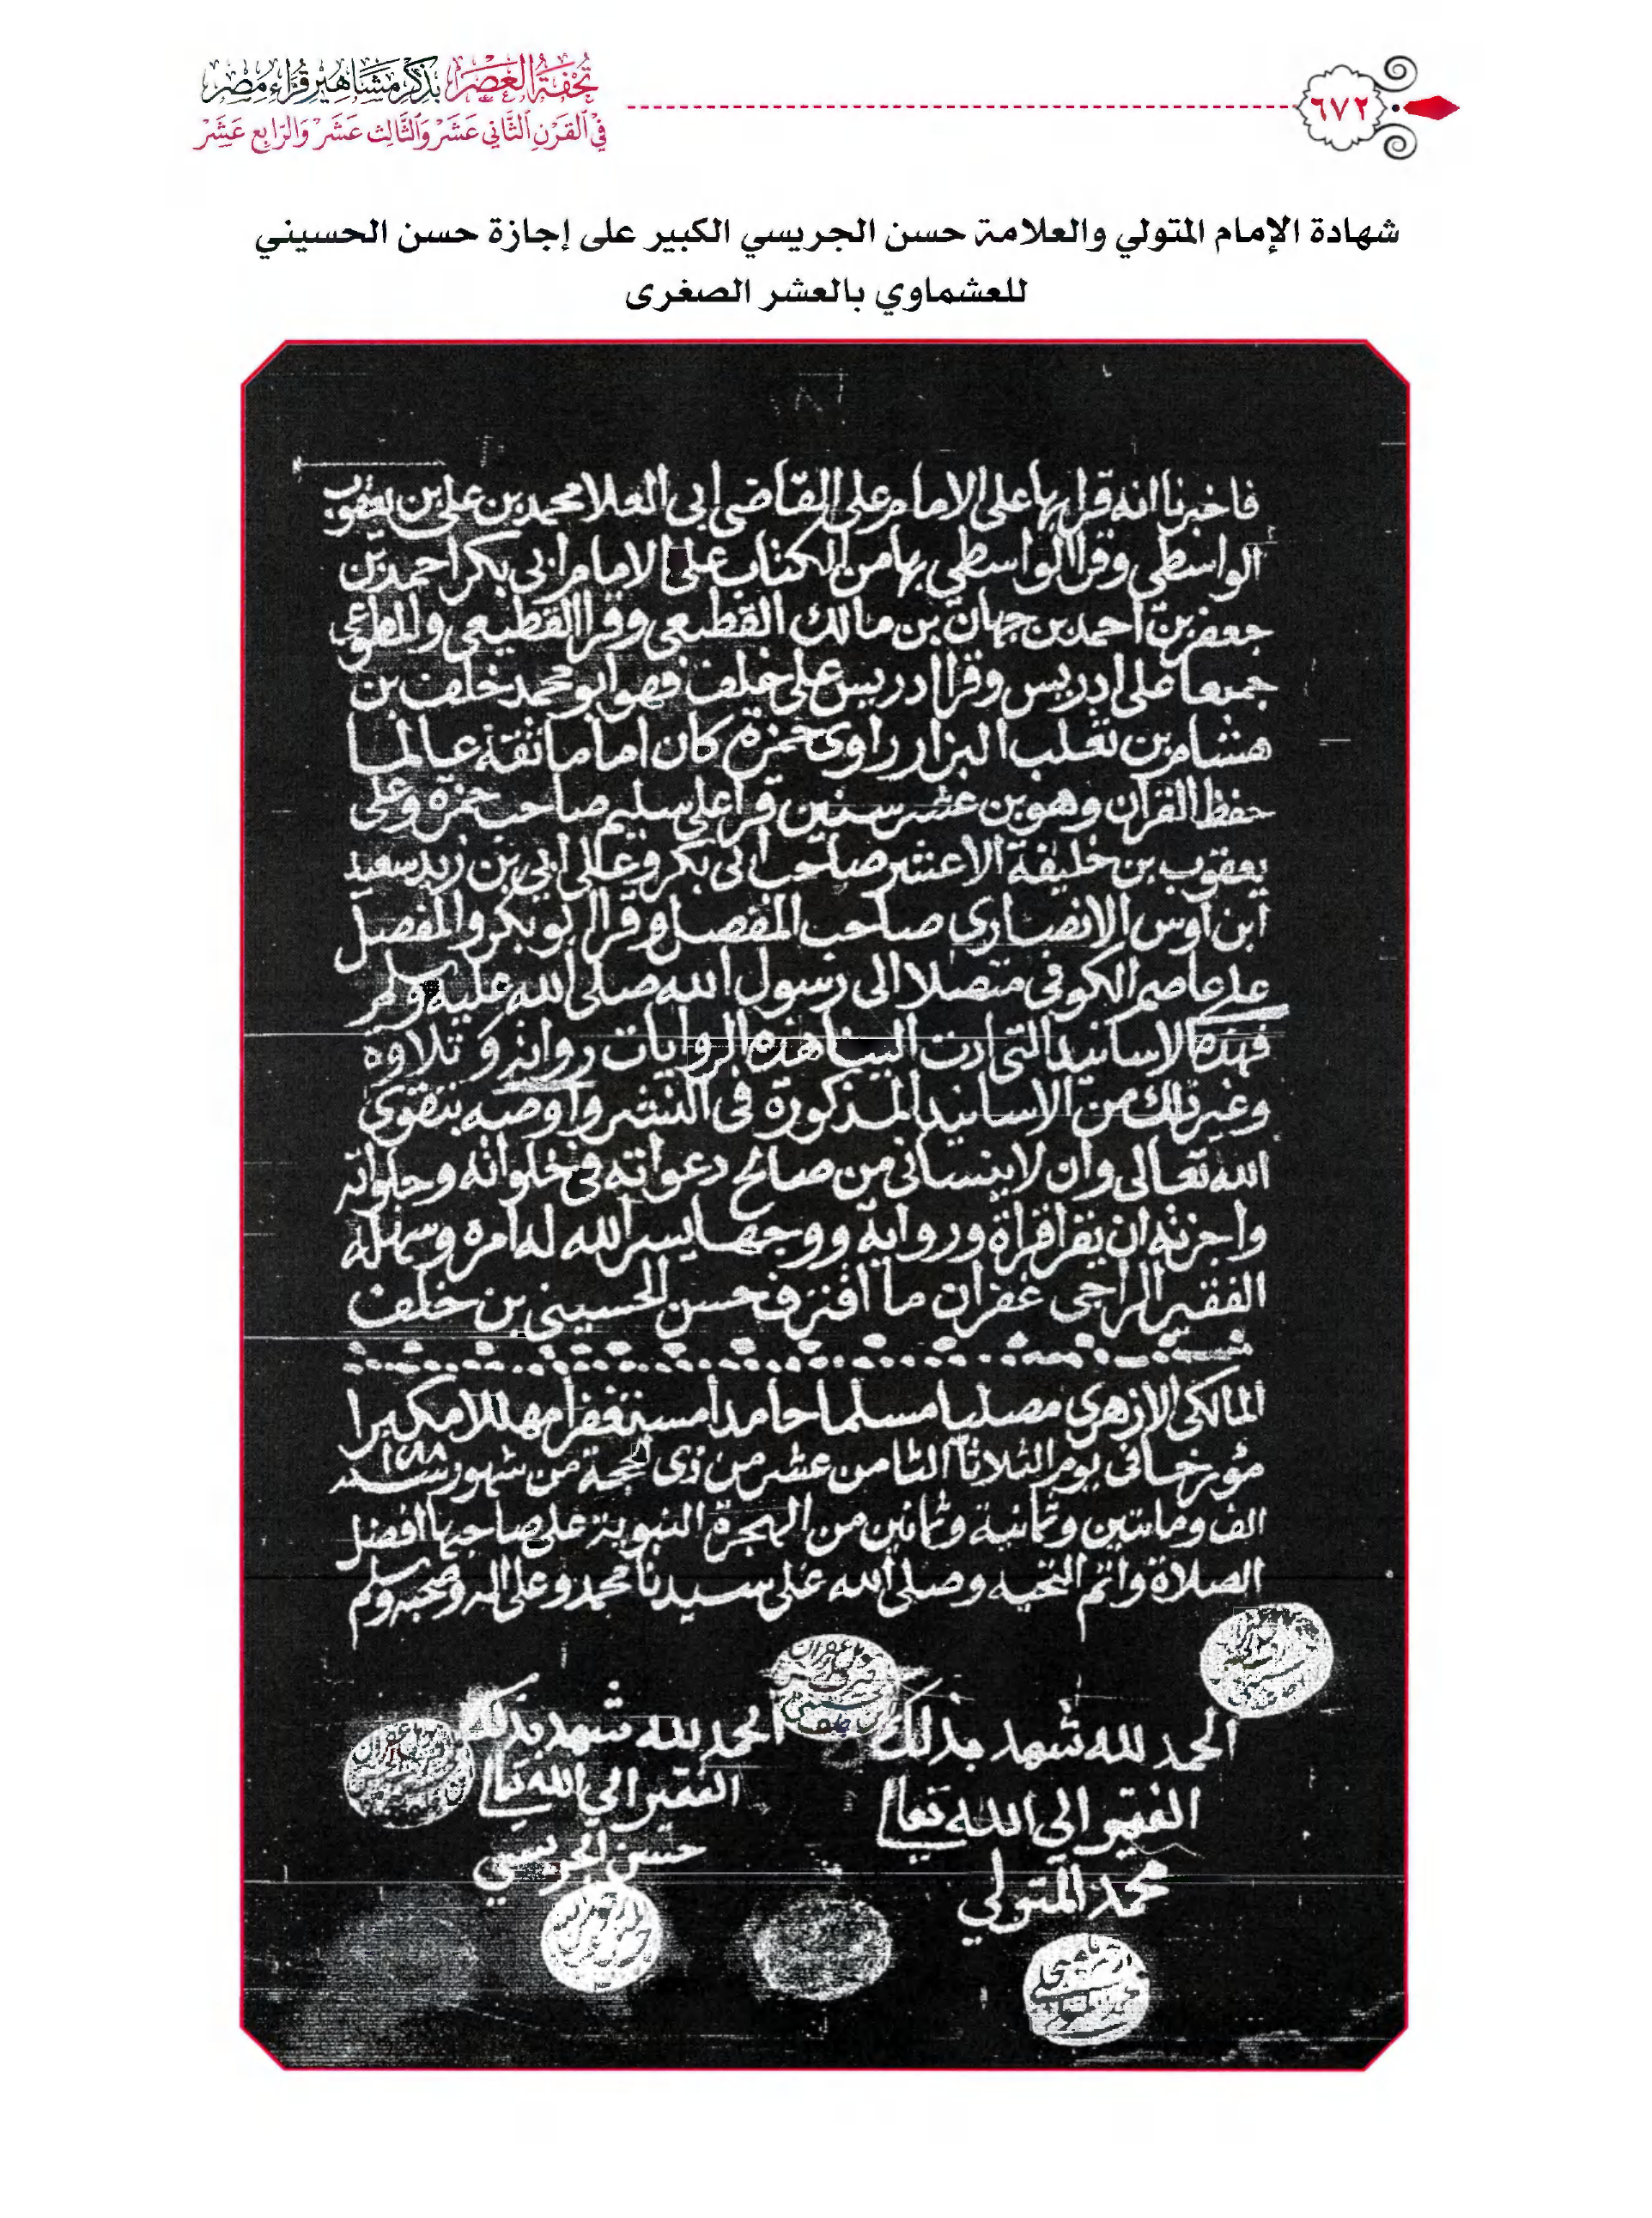 تحفة العصر بذكر مشاهير قراء مصر
في القرن الثاني عشر والثالث عشر والرابع عشر
٦٧٢
شهادة الإمام المتولي والعلامة حسن الجريسي الكبير على إجازة حسن الحسيني
للعشماوي بالعشر الصغرى
فاخبرنا انه قرا بها على الامام على القاضى ابى العلا محمد بن على بن يعقوب
الواسطى وقرا الواسطى بها من الكتاب على الامام ابى بكر احمد بن
جعفر بن احمد بن جهان بن مالك القطيعى وقرا القطيعى والمطوعى
جميعا على ادريس وقرا ادريس على خلف فهو ابو محمد خلف بن
هشام بن تغلب البزار راوى حمزة كان اماما ثقة عالما
حفظ القران وهو بن عشر سنين قرا على سليم صاحب حمزة وعلى
يعقوب بن خليفة الاعشر صاحب ابى بكر وعلى ابى بن زيد سعيد
ابن اوس الانصارى صاحب المفصل وقرا ابو بكر والمفصل
على عاصم الكوفى متصلا الى رسول الله صلى الله عليه وسلم
فهذه الاسانيد التى ادت الينا هذه الروايات رواية وتلاوة
وغير ذلك من الاسانيد المذكورة فى النشر واوصيه بتقوى
الله تعالى وان لا ينسانى من صالح دعواته فى خلواته وجلواته
واجزته ان يقرا قراة ورواية ووجها يسر الله له امره وسهل له
الفقير الراجى غفران ما اقترف حسن الحسينى بن خلف
المالكى الازهري مصليا مسلما حامدا مستغفرا مهللا مكبرا
مؤرخا فى يوم الثلاثا الثامن عشر من ذى الحجة من شهور سنة ١٢٨٨
الف ومايتين وثمانية وثمانين من الهجرة النبوية على صاحبها افضل
الصلاة واتم التحيه وصلى الله على سيدنا محمد وعلى اله وصحبه وسلم
الحمد لله شهد بذلك
الفقير الي الله تعالى
محمد المتولي
الحمد لله شهد بذلك
الفقير الي الله تعالى
حسن الجريسي